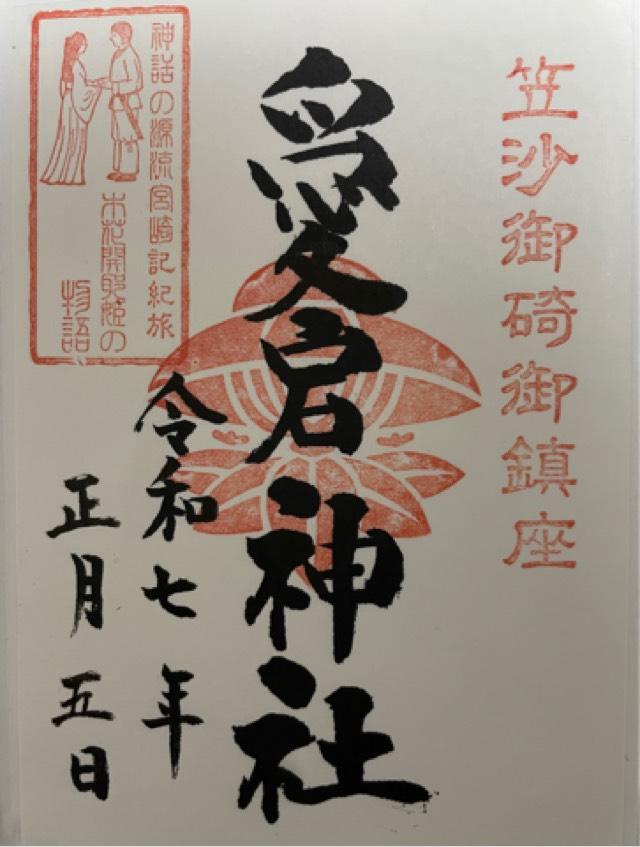 笠沙御碕御鎮座
愛宕神社
神話の源流宮崎記紀旅
木花開耶姫の
物語
令和七年
正月五日